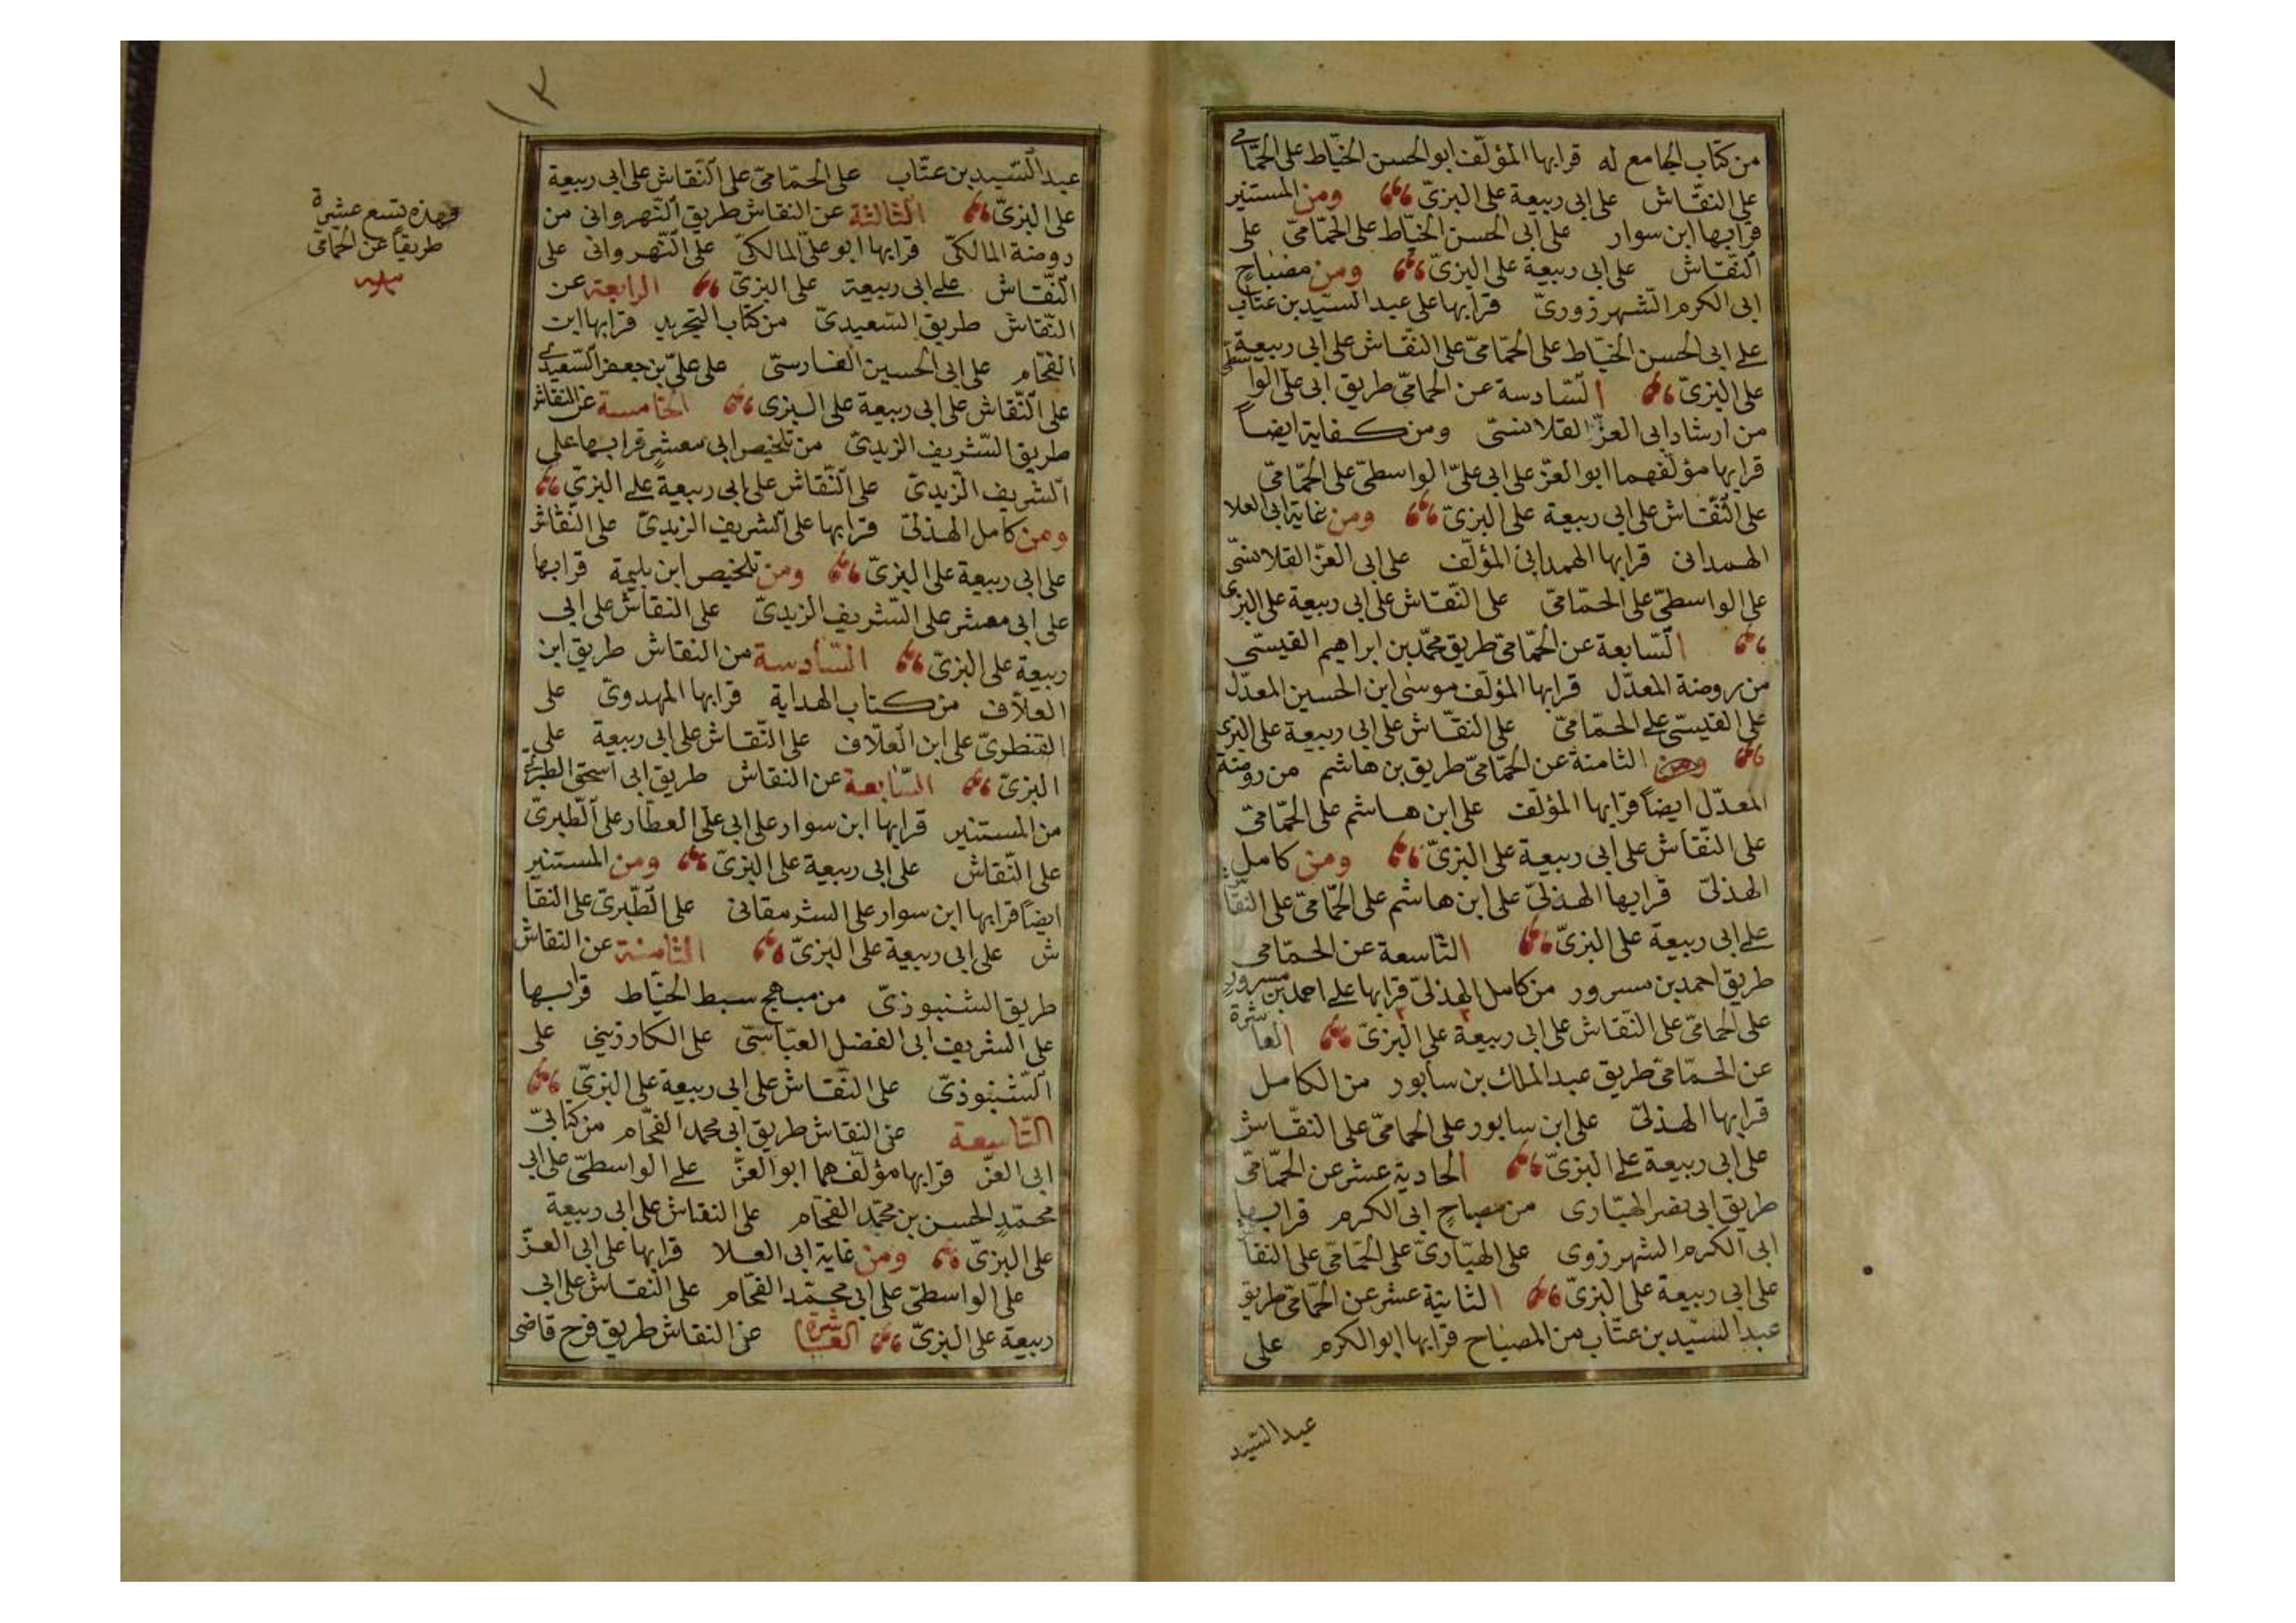 من كتاب الجامع له قرابها المؤلف ابو الحسن الخيّاط على الحمّامي
على النقّاش على ابى ربيعة على البزىّ ومن المستنير
قرابها ابن سوار على ابى الحسن الخيّاط على الحمّامىّ على
النّقّاش على ابى ربيعة على البزىّ ومن مصباح
ابى الكرم الشهرزورىّ قرابها على عبد السيّد بن عتّاب
على ابى الحسن الخيّاط على الحمّامىّ على النقّاش على ابى ربيعة
على البزىّ السّادسة عن الحمامىّ طريق ابى على الواسطىّ
من ارشاد ابى العزّ القلانسىّ ومن كفاية ايضاً
قرابها مؤلفهما ابو العزّ على ابى علىّ الواسطىّ على الحمّامىّ
على النّقّاش على ابى ربيعة على البزىّ ومن غاية ابى العلا
الهمدانى قرابها الهمدانىّ المؤلّف على ابى العزّ القلانسىّ
على الواسطىّ على الحمّامىّ على النّقّاش على ابى ربيعة على البزى
السّابعة عن الحمّامىّ طريق محمّد بن ابراهيم القيسىّ
من روضة المعدّل قرابها المؤلف موسى ابن الحسين المعدّل
على القيسىّ على الحمّامىّ على النقّاش على ابى ربيعة على البزى
ومن الثامنة عن الحمّامىّ طريق بن هاشم من روضة
المعدّل ايضاً قرابها المؤلّف على ابن هاشم على الحمّامىّ
على النّقّاش على ابى ربيعة على البزىّ ومن كامل
الهذلىّ قرابها الهذلىّ على ابن هاشم على الحمّامىّ على النقّاش
على ابى ربيعة على البزىّ التّاسعة عن الحمّامى
طريق احمد بن مسرور من كامل الهذلىّ قرابها على احمد بن مسرور
على الحمامىّ على النّقّاش على ابى ربيعة على البزىّ العاشرة
عن الحمّامىّ طريق عبد الملك بن سابور من الكامل
قرابها الهذلىّ على ابن سابور على الحمامىّ على النقّاش
على ابى ربيعة على البزىّ الحادية عشر عن الحمّامىّ
طريق ابى نصر الهبّارى من مصباح ابى الكرم قرابها
ابى الكرم الشهرزوى على الهبّارىّ على الحمّامىّ على النقا
على ابى ربيعة على البزىّ الثانية عشر عن الحمّامىّ طريق
عبد السيّد بن عتّاب من المصباح قرابها ابو الكرم على
عبد السّيد
١٣
عبد السّيد بن عتّاب على الحمّامىّ على النّقّاش على ابى ربيعة
على البزىّ الثالثة عن النقاش طريق النّهروانى من
روضة المالكىّ قرابها ابو علىّ المالكىّ على النّهروانى على
النّقّاش على ابى ربيعة على البزىّ الرابعة عن
النّقّاش طريق السّعيدىّ من كتاب التجريد قرابها ابن
الفحّام على ابى الحسين الفارسىّ على علىّ بن جعفر السّعيدى
على النّقّاش على ابى ربيعة على البزى الخامسة عن النقاش
طريق الشّريف الزيدىّ من تلخيص ابى معشر قرابها على
الشريف الزّيدىّ على النّقّاش على ابى ربيعة على البزىّ
ومن كامل الهذلىّ قرابها على الشريف الزيدىّ على النّقّاش
على ابى ربيعة على البزىّ ومن تلخيص ابن بليمة قرابها
على ابى معشر على الشّريف الزيدىّ على النقّاش على ابى
ربيعة على البزىّ السّادسة من النقاش طريق ابن
العلّاف من كتاب الهداية قرابها المهدوىّ على
القنطرىّ على ابن العلّاف على النّقّاش على ابى ربيعة على
البزىّ السّابعة عن النقاش طريق ابى اسحق الطبرى
من المستنير قرابها ابن سوار على ابى على العطّار على الطّبرىّ
على النّقّاش على ابى ربيعة على البزىّ ومن المستنير
ايضاً قرابها ابن سوار على الشرمقانى على الطّبرىّ على النقا
ش على ابى ربيعة على البزىّ الثامنة عن النقاش
طريق الشنبوذىّ من مبهج سبط الخيّاط قرابها
على الشريف ابى الفضل العبّاسىّ على الكارزينى على
الشّنبوذىّ على النّقّاش على ابى ربيعة على البزىّ
التّاسعة عن النقاش طريق ابى محمد الفحّام من كتابىّ
ابى العزّ قرابها مؤلّفهما ابو العزّ على الواسطىّ على ابى
محمّد الحسن بن محمّد الفحّام على النقاش على ابى ربيعة
على البزىّ ومن غاية ابى العلا قرابها على ابى العزّ
على الواسطىّ على ابى محمّد الفحّام على النّقّاش على ابى
ربيعة على البزىّ العاشرة عن النقاش طريق فرح قاضى
فهذه تسع عشرة
طريقاً عن الحمّامىّ